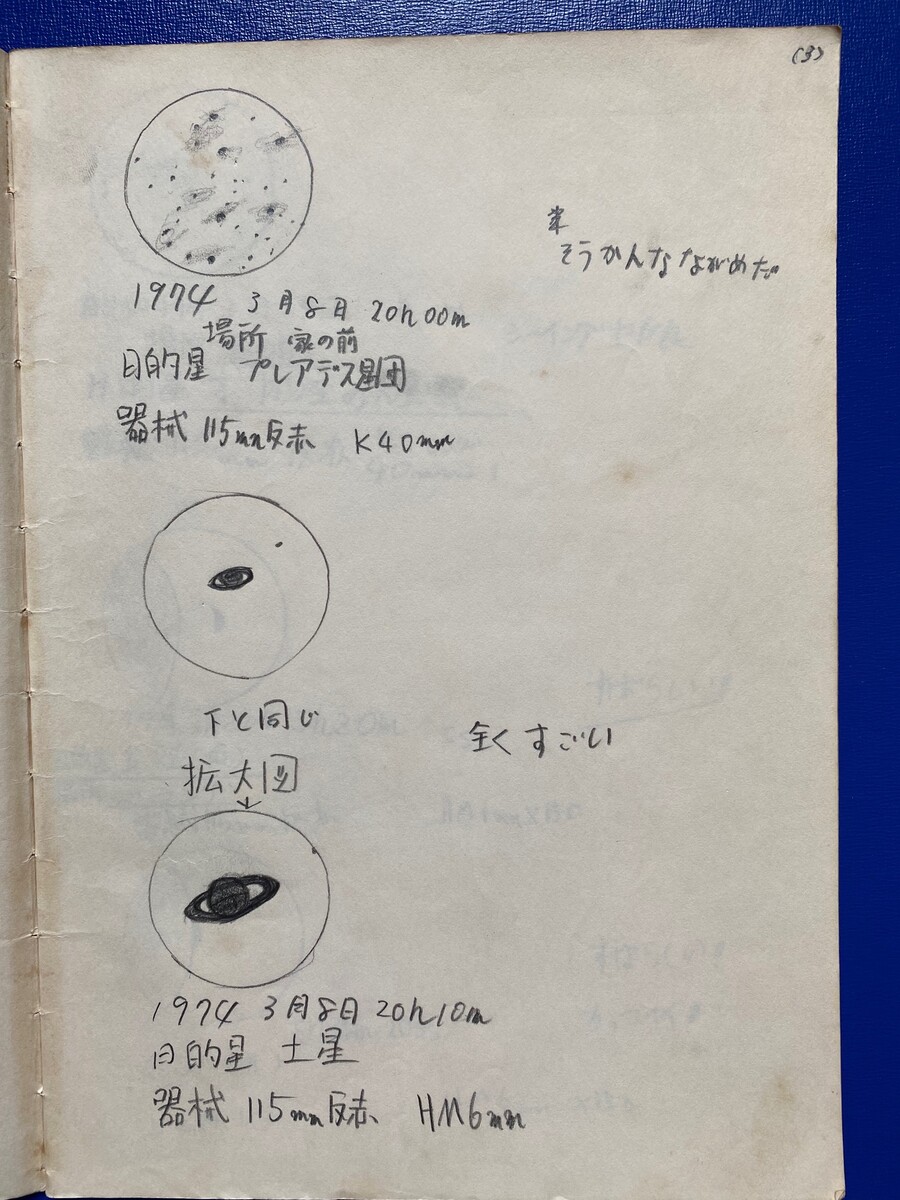 (3)
*
そうかんなながめだ
1974 3月8日 20h00m
場所 家の前
目的星 プレアデス星団
器械 115mm反赤 K40mm
下と同じ
拡大図
↓
全くすごい
1974 3月8日 20h10m
目的星 土星
器械 115mm反赤 HM6mm